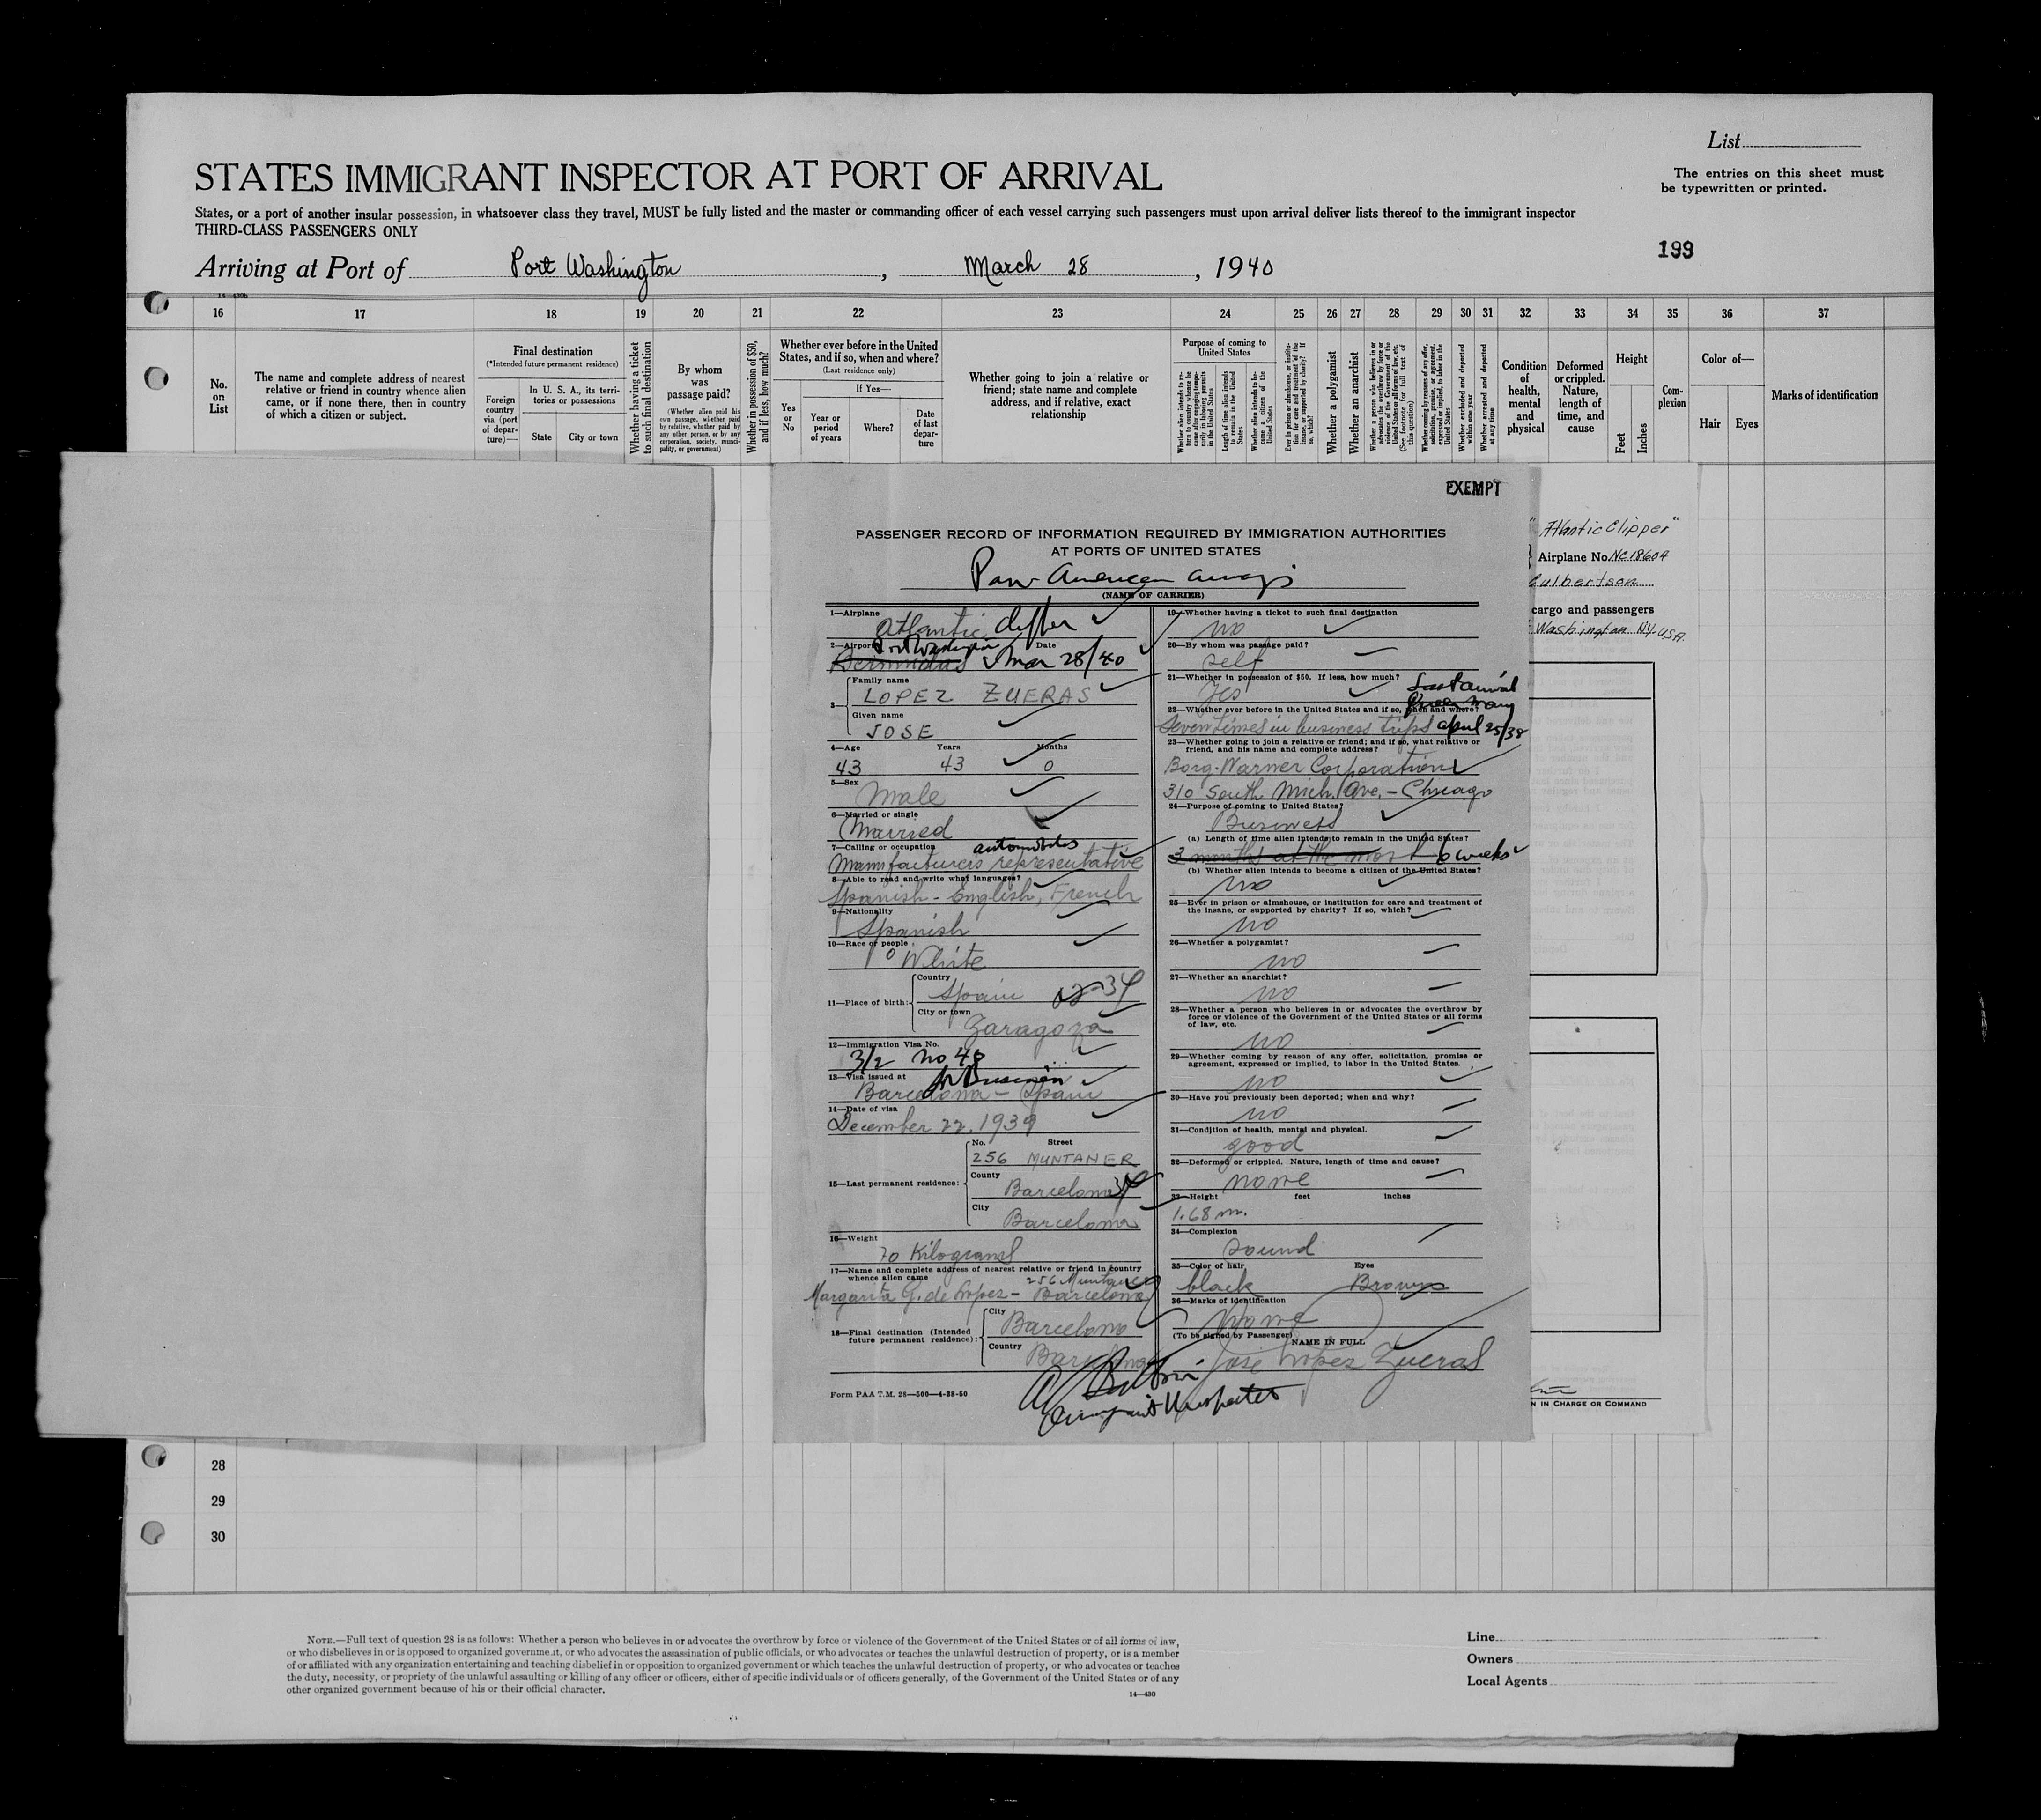 List
STATES IMMIGRANT INSPECTOR AT PORT OF ARRIVAL
The entries on this sheet must
be typewritten or printed.
States, or a port of another insular possession, in whatsoever class they travel, MUST be fully listed and the master or commanding officer of each vessel carrying such passengers must upon arrival deliver lists thereof to the immigrant inspector
THIRD-CLASS PASSENGERS ONLY
199
Arriving at Port of Port Washington, March 28, 1940
16 17 18 19 20 21 22 23 24 25 26 27 28 29 30 31 32 33 34 35 36 37
No. on List
The name and complete address of nearest relative or friend in country whence alien came, or if none there, then in country of which a citizen or subject.
Final destination
(*Intended future permanent residence)
Foreign country via (port of departure)—
In U. S. A., its territories or possessions
State
City or town
Whether having a ticket to such final destination
By whom was passage paid?
(Whether alien paid his own passage, whether paid by relative, whether paid by any other person, or by any corporation, society, municipality, or government)
Whether in possession of $50, and if less, how much?
Whether ever before in the United States, and if so, when and where?
(Last residence only)
Yes or No
If Yes—
Year or period of years
Where?
Date of last departure
Whether going to join a relative or friend; state name and complete address, and if relative, exact relationship
Purpose of coming to United States
Length of time alien intends to remain in the United States
Whether alien intends to become a citizen of the United States
Whether a polygamist
Whether an anarchist
Whether excluded and deported within one year
Whether arrested and deported at any time
Condition of health, mental and physical
Deformed or crippled. Nature, length of time, and cause
Height
Feet
Inches
Complexion
Color of—
Hair
Eyes
Marks of identification
EXEMPT
PASSENGER RECORD OF INFORMATION REQUIRED BY IMMIGRATION AUTHORITIES
AT PORTS OF UNITED STATES
Pan American Airways
(NAME OF CARRIER)
1—Airplane
Atlantic Clipper
2—Airport Date
Port Washington
Bermudas Mar 28/40
3— Family name
LOPEZ ZUERAS
Given name
JOSE
4—Age Years Months
43 43 0
5—Sex
Male
6—Married or single
Married
7—Calling or occupation
automobiles
Manufacturers representative
8—Able to read and write what languages?
Spanish - English, French
9—Nationality
Spanish
10—Race or people
White
11—Place of birth:
Country
Spain
City or town
Zaragoza
12—Immigration Visa No.
3/2 No 48
13—Visa issued at
Barcelona - Spain
14—Date of visa
December 22, 1939
15—Last permanent residence:
No. Street
256 MUNTANER
County
Barcelona
City
Barcelona
16—Weight
70 Kilograms
17—Name and complete address of nearest relative or friend in country
whence alien came
256 Muntaner
Margarita G. de Lopez - Barcelona
18—Final destination (Intended
future permanent residence):
City
Barcelona
Country
Barcelona
Form PAA T.M. 28—500—4-38-50
19—Whether having a ticket to such final destination
no
20—By whom was passage paid?
self
21—Whether in possession of $50. If less, how much?
Yes
Last arrival
Queen Mary
22—Whether ever before in the United States and if so, when and where?
Seven times in business trips april 25/38
23—Whether going to join a relative or friend; and if so, what relative or
friend, and his name and complete address?
Borg-Warner Corporation
310 South Mich. Ave. - Chicago
24—Purpose of coming to United States?
Business
(a) Length of time alien intends to remain in the United States?
3 months at the most 6 weeks
(b) Whether alien intends to become a citizen of the United States?
no
25—Ever in prison or almshouse, or institution for care and treatment of
the insane, or supported by charity? If so, which?
no
26—Whether a polygamist?
no
27—Whether an anarchist?
no
28—Whether a person who believes in or advocates the overthrow by
force or violence of the Government of the United States or all forms
of law, etc.
no
29—Whether coming by reason of any offer, solicitation, promise or
agreement, expressed or implied, to labor in the United States.
no
30—Have you previously been deported; when and why?
no
31—Condition of health, mental and physical.
good
32—Deformed or crippled. Nature, length of time and cause?
none
33—Height feet inches
1.68 m.
34—Complexion
sound
35—Color of hair Eyes
black Brown
36—Marks of identification
None
(To be signed by Passenger) NAME IN FULL
Jose Lopez Zueras
Immigrant Inspector
"Atlantic Clipper"
Airplane No. NC18604
Culbertson
cargo and passengers
Washington N.Y. USA
N IN CHARGE OR COMMAND
28
29
30
NOTE.—Full text of question 28 is as follows: Whether a person who believes in or advocates the overthrow by force or violence of the Government of the United States or of all forms of law,
or who disbelieves in or is opposed to organized government, or who advocates the assassination of public officials, or who advocates or teaches the unlawful destruction of property, or is a member
of or affiliated with any organization entertaining and teaching disbelief in or opposition to organized government or which teaches the unlawful destruction of property, or who advocates or teaches
the duty, necessity, or propriety of the unlawful assaulting or killing of any officer or officers, either of specific individuals or of officers generally, of the Government of the United States or of any
other organized government because of his or their official character.
14—430
Line
Owners
Local Agents